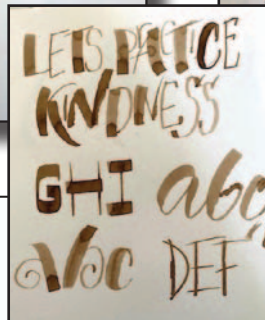 LETS PRACTICE
KINDNESS
GHI abc
Abc DEF